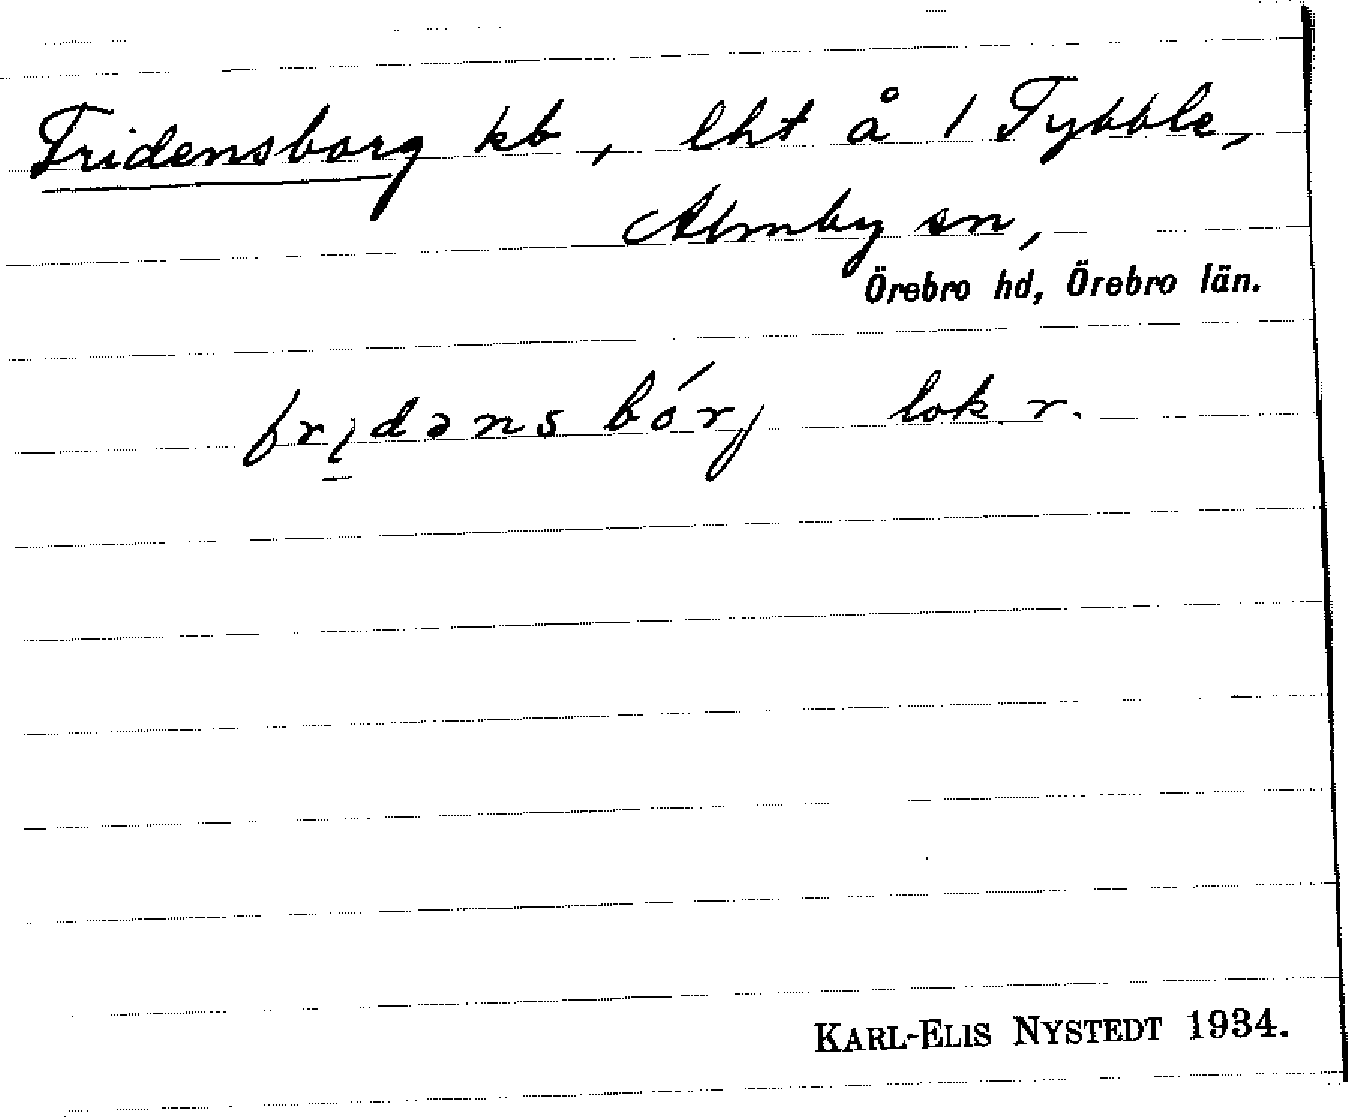 Fridensborg kb, lht å 1 Tybble,
Almby sn,
Örebro hd, Örebro län.
fridəns bórj lok r.
KARL-ELIS NYSTEDT 1934.